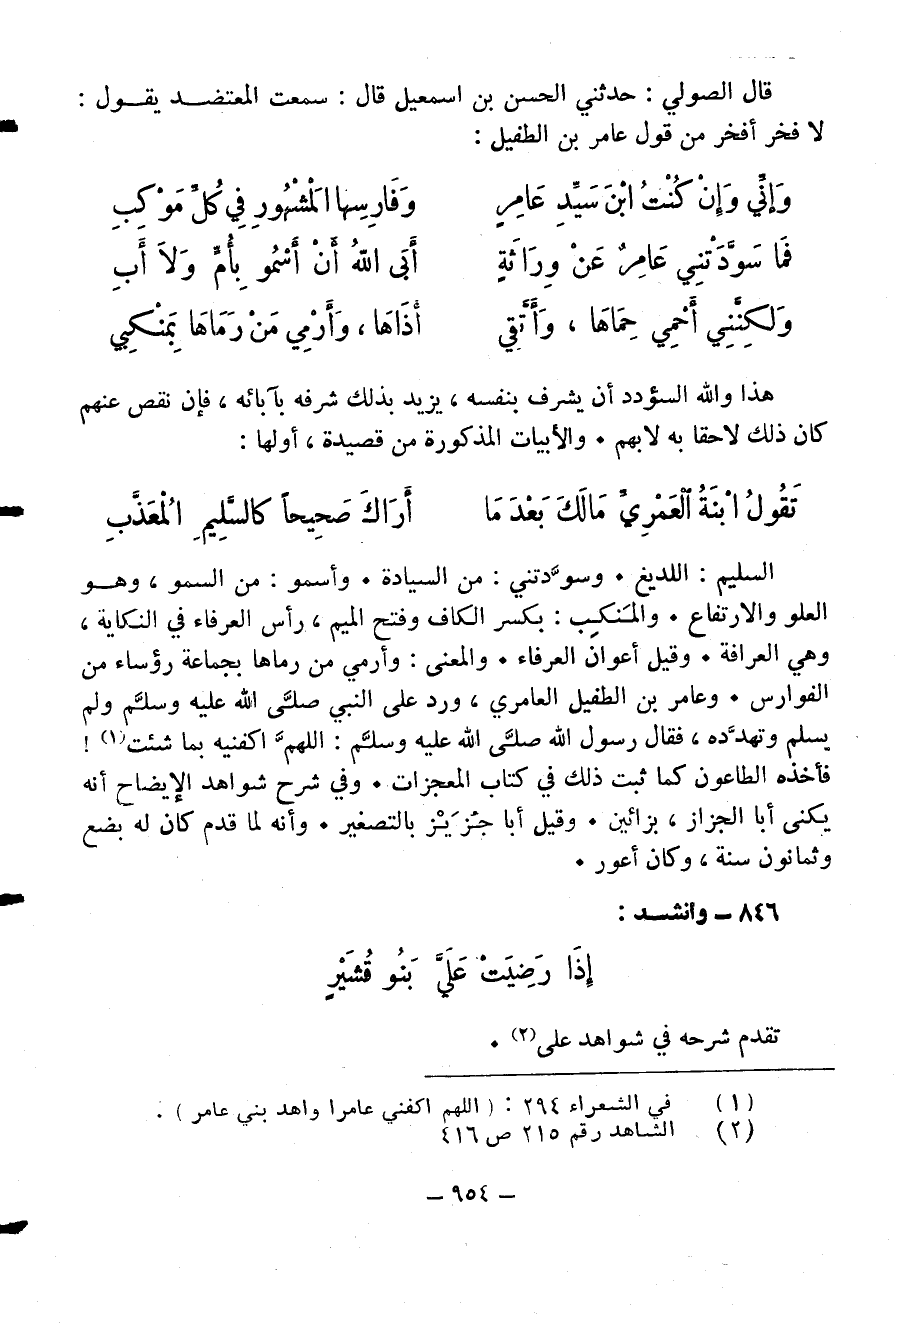 قال الصولي : حدثني الحسن بن اسمعيل قال : سمعت المعتضد يقول :
لا فخر أفخر من قول عامر بن الطفيل :
وَإِنِّي وَإِنْ كُنْتُ ابْنَ سَيِّدِ عَامِرٍ وَفَارِسِهَا المَشْهُورِ فِي كُلِّ مَوْكِبِ
فَمَا سَوَّدَتْنِي عَامِرٌ عَنْ وِرَاثَةٍ أَبَى اللهُ أَنْ أَسْمُو بِأُمٍّ وَلاَ أَبِ
وَلكِنَّنِي أَحْمِي حِمَاهَا ، وَأَتَّقِي أَذَاهَا ، وَأَرْمِي مَنْ رَمَاهَا بِمَنْكِبِي
هذا والله السؤدد أن يشرف بنفسه ، يزيد بذلك شرفه بآبائه ، فإن نقص عنهم
كان ذلك لاحقا به لابهم • والأبيات المذكورة من قصيدة ، أولها :
تَقُولُ ابْنَةُ العَمْرِيِّ مَالَكَ بَعْدَمَا أَرَاكَ صَحِيحاً كالسَّلِيمِ المُعَذَّبِ
السليم : اللديغ • وسوَّدتني : من السيادة • وأسمو : من السمو ، وهو
العلو والارتفاع • والمَنكِب : بكسر الكاف وفتح الميم ، رأس العرفاء في النكاية ،
وهي العرافة • وقيل أعوان العرفاء • والمعنى : وأرمي من رماها بجماعة رؤساء من
الفوارس • وعامر بن الطفيل العامري ، ورد على النبي صلَّى الله عليه وسلَّم ولم
يسلم وتهدَّده ، فقال رسول الله صلَّى الله عليه وسلَّم : اللهمَّ اكفنيه بما شئت(١) !
فأخذه الطاعون كما ثبت ذلك في كتاب المعجزات • وفي شرح شواهد الإيضاح أنه
يكنى أبا الجزاز ، بزائين • وقيل أبا جُزَيْز بالتصغير • وأنه لما قدم كان له بضع
وثمانون سنة ، وكان أعور •
٨٤٦ – وانشد :
إِذَا رَضِيَتْ عَلَيَّ بَنُو قُشَيْرٍ
تقدم شرحه في شواهد على(٢) •
(١) في الشعراء ٢٩٤ : ( اللهم اكفني عامرا واهد بني عامر ) .
(٢) الشاهد رقم ٢١٥ ص ٤١٦
– ٩٥٤ –